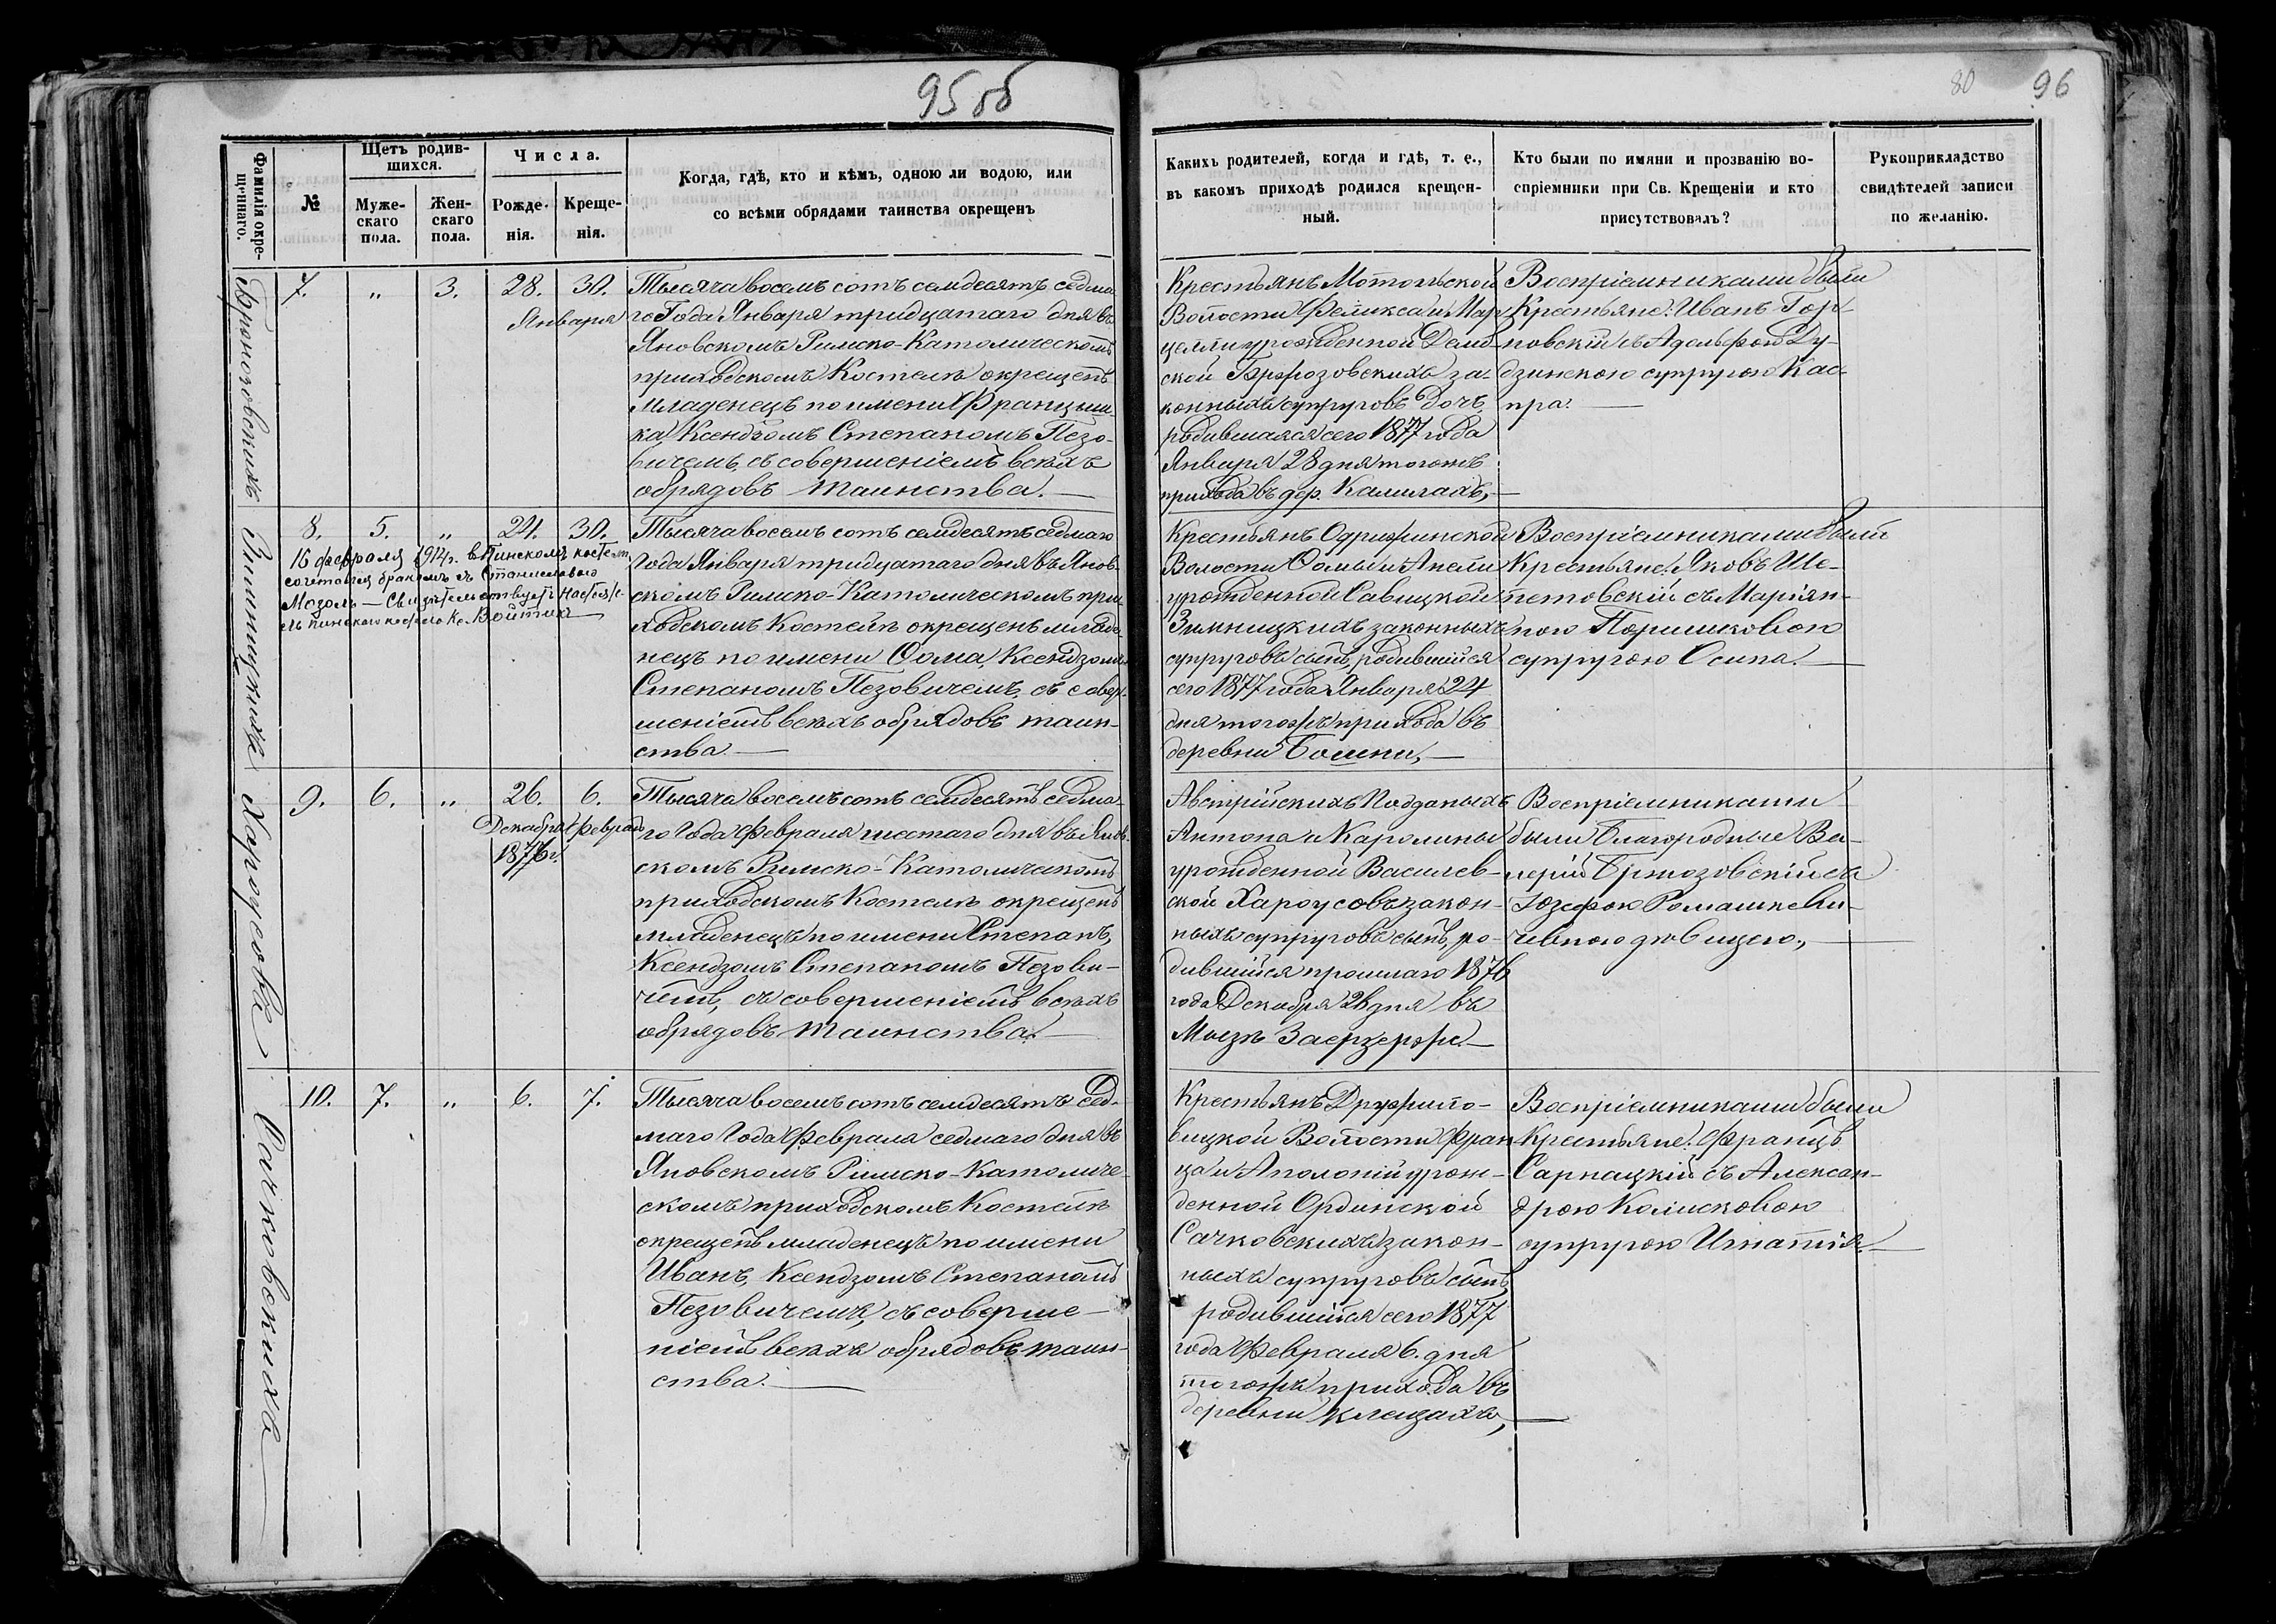 95 об
80 96
Фамилія окре-
щеннаго.
№
Щетъ родив-
шихся.
Муже-
скаго
пола.
Жен-
скаго
пола.
Числа.
Рожде-
нія.
Креще-
нія.
Когда, гдѣ, кто и кѣмъ, одною ли водою, или
со всѣми обрядами таинства окрещенъ
Какихъ родителей, когда и гдѣ, т. е.,
въ какомъ приходѣ родился крещен-
ный.
Кто были по имяни и прозванію во-
спріемники при Св. Крещеніи и кто
присутствовалъ?
Рукоприкладство
свидѣтелей записи
по желанію.
7. " 3. 28. 30.
Января
Тысяча восемъ сотъ семдесятъ седма-
го Года Января тридцатаго дня въ
Яновскомъ Римско-Католическомъ
приходскомъ Костелѣ окрещенъ
младенецъ по имени Францыш-
ка, Ксендзомъ Степаномъ Пезо-
вичемъ, съ совершеніемъ всѣхъ
обрядовъ таинства.—
Крестьянъ Мотольской
Волости Феликса и Мар-
целли урожденной Демб-
ской Бржозовскихъ за-
конныхъ супруговъ дочь,
родившаяся сего 1877 года
Января 28 дня тогожъ
прихода въ дер. Калилахъ,—
Воспріемниками были
Крестьяне: Иванъ Гор-
новскій съ Адольфою Ду-
дзинскою супругою Кас-
пра.—
Зимницкихъ
8. 5. " 24. 30.
16 февраля 1914 г. в Пинскомъ костелѣ
сочетался бракомъ съ Станиславою
Мозоль — Свидѣтельствуетъ Настояте-
ль пинскаго костела Кс. Войтик
Тысяча восемъ сотъ семдесятъ седмаго
Года Января тридцатаго дня въ Янов-
скомъ Римско-Католическомъ при-
ходскомъ Костелѣ окрещенъ младе-
нецъ по имени Ѳома, Ксендзомъ
Степаномъ Пезовичемъ, съ совер-
шеніемъ всѣхъ обрядовъ таин-
ства—
Крестьянъ Одрижинской
Волости Ѳомы и Анели
урожденной Савицкой
Зимницкихъ законныхъ
супруговъ сынъ, родившійся
сего 1877 года Января 24
дня тогожъ прихода въ
деревни Бошни,—
Воспріемниками были
Крестьяне: Яковъ Ше-
петовскій съ Маріян-
ною
супругою Осипа.—
Хароусовъ
9. 6. " 26. 6.
Декабря Февраля
1876 г.
Тысяча восемъ сотъ семдесятъ седма-
го Года Февраля шестаго дня въ Янов-
скомъ Римско-Католическомъ
приходскомъ Костелѣ окрещенъ
младенецъ по имени Степанъ,
Ксендзомъ Степаномъ Пезови-
чемъ, съ совершеніемъ всѣхъ
обрядовъ таинства.—
Австрійскихъ Подданыхъ
Антона и Каролины
урожденной Василев-
ской Хароусовъ закон-
ныхъ супруговъ сынъ, ро-
дившійся прошлаго 1876
года Декабря 26 дня въ
Мызѣ
Воспріемниками
были Благородные Ва-
лерій Бржозовскій съ
Юзефою Ромашкеви-
чевною дѣвицею,—
Сачковскихъ
10. 7. " 6. 7.
Тысяча восемъ сотъ семдесятъ сед-
маго Года Февраля седмаго дня въ
Яновскомъ Римско-Католиче-
скомъ приходскомъ Костелѣ
окрещенъ младенецъ по имени
Иванъ, Ксендзомъ Степаномъ
Пезовичемъ, съ соверше-
ніемъ всѣхъ обрядовъ таин-
ства.—
Крестьянъ Дружило-
вицкой Волости Фран-
ца и Аполоніи урож-
денной Ординской
Сачковскихъ закон-
ныхъ супруговъ сынъ,
родившійся сего 1877
года Февраля 6. дня
тогожъ прихода въ
деревни Клещахъ,—
Воспріемниками были
Крестьяне: Францъ
Сарнацкій съ Алексан-
дрою Колисковою
супругою Игнатія.—